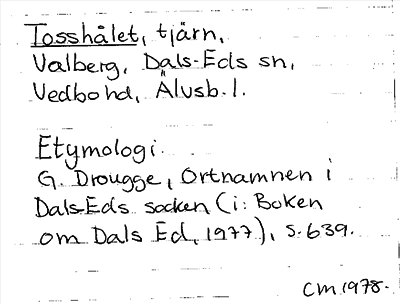 Tosshålet, tjärn,
Valberg, Dals-Eds sn,
Vedbo hd, Älvsb. l.
Etymologi.
G. Drougge, Ortnamnen i
Dals-Eds socken (i: Boken
om Dals Ed, 1977), s. 639.
CM 1978.